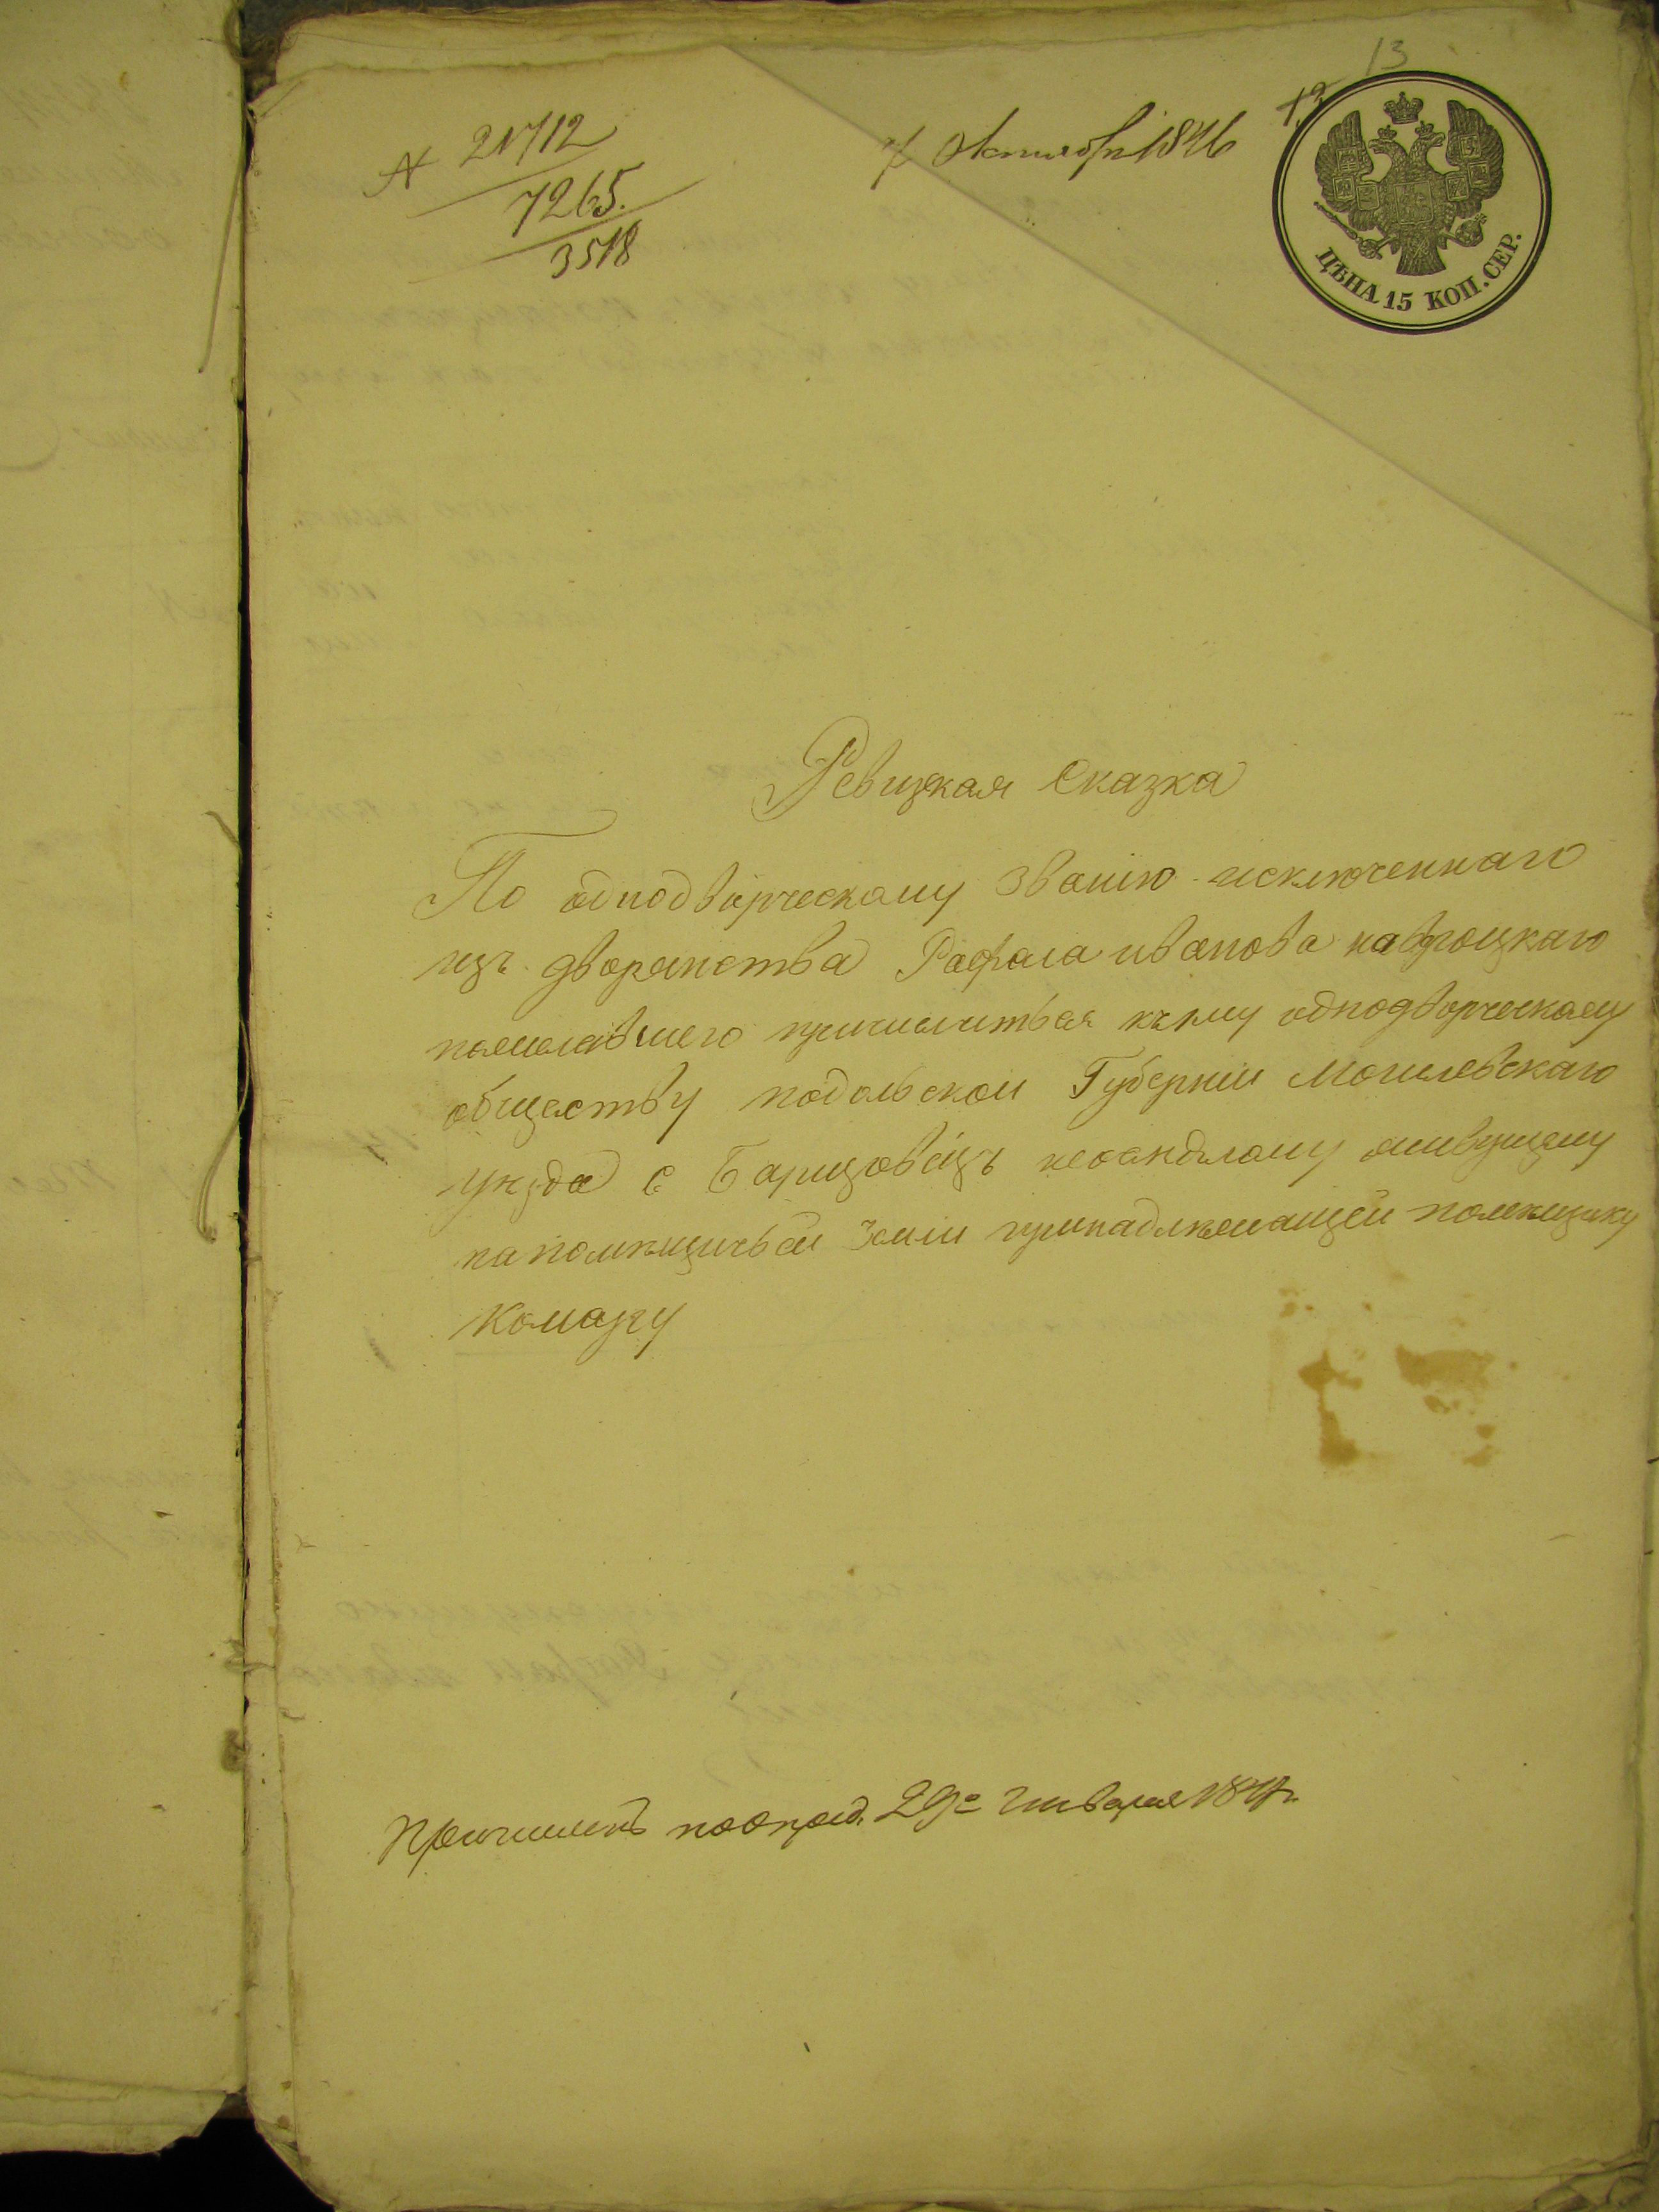 13
№ 21712
7265.
3518
7 Октября 1846
13
ЦѢНА 15 КОП. СЕР.
Ревизкая Сказка
По однодворческому званию исключеннаго
изъ дворянства Рафала иванова навроцкаго
пожелавшего причислитьса къ однодворческому
обществу подольской Губерніи Могилевскаго
уезда с Барщовецъ неоседлому живущему
на помещичьей Земли принадлежащей помещику
Комару
Причисленъ по опред. 29го Января 1847 г.